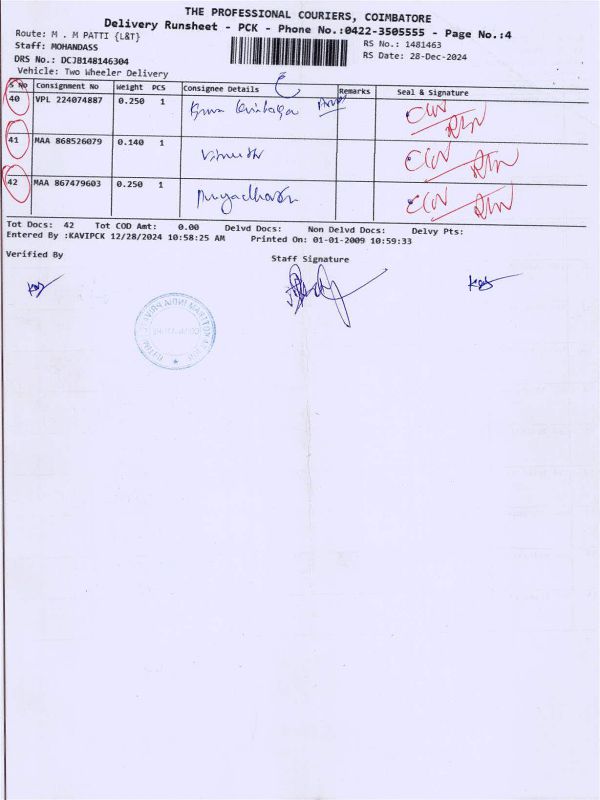 THE PROFESSIONAL COURIERS, COIMBATORE
Delivery Runsheet - PCK - Phone No.:0422-3505555 - Page No.:4
Route: M . M PATTI {L&T}
RS No.: 1481463
Staff: MOHANDASS
RS Date: 28-Dec-2024
DRS No.: DCJB148146304
Vehicle: Two Wheeler Delivery
S No Consignment No Weight PCS Consignee Details Remarks Seal & Signature
40 VPL 224074887 0.250 1
41 MAA 868526079 0.140 1
42 MAA 867479603 0.250 1
Tot Docs: 42 Tot COD Amt: 0.00 Delvd Docs: Non Delvd Docs: Delvy Pts:
Entered By :KAVIPCK 12/28/2024 10:58:25 AM Printed On: 01-01-2009 10:59:33
Verified By
Staff Signature